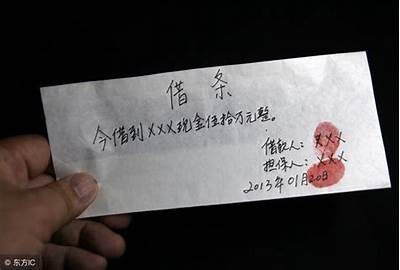 借条
今借到XXX现金伍拾万元整。
借款人：XXX
担保人：XXX
2013年01月20日
东方IC